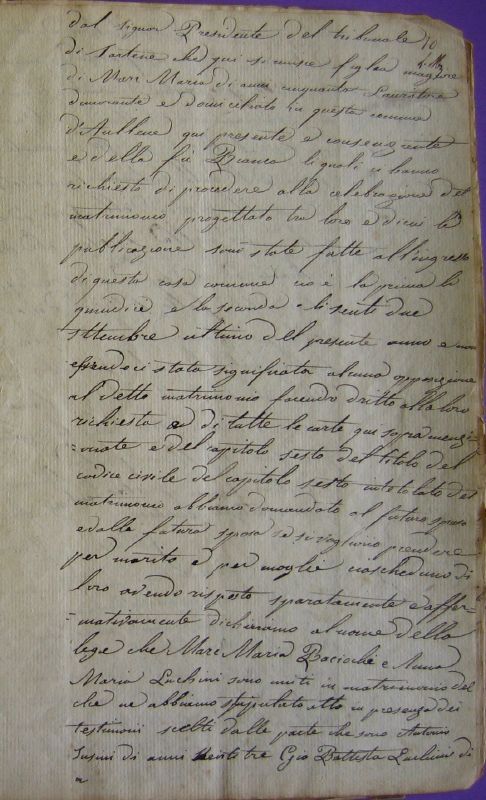 dal signor Presidente del tribunale 70
di Sartene che qui si unisce figlia maggiore
di Marc Maria di anni cinquanta Lavoratore
dimorante e domiciliato in questa comune
d'Aullene qui presente e consensente
e della fu Bianca li quali ci hanno
richiesto di procedere alla celebrazione del
matrimonio progettato tra loro e di cui le
publicazione sono state fatte all'ingresso
di questa casa comune cio è la prima li
quindici e la seconda li venti due
settembre ultimo del presente anno e non
essendoci stata significata alcuna opposizione
al detto matrimonio facendo dritto alla loro
richiesta di tutte le carte qui sopra menzi
=onate e del capitolo sesto del titolo del
codice civile del capitolo sesto intitolato del
matrimonio abbiamo domandato al futuro sposo
e dalla futura sposa se si vogliono prendere
per marito e per moglie ciascheduno di
loro avendo risposto sparatamente e affer=
=mativamente dichiariamo al nome della
lege che Marc Maria Bacioche e Anna
Maria Luchini sono uniti in matrimonio del
che ne abbiamo stipulato atto in presenza dei
testimoni scelti dalle parte che sono Antonio
Susini di anni trenta tre Gio Battista Luchini di